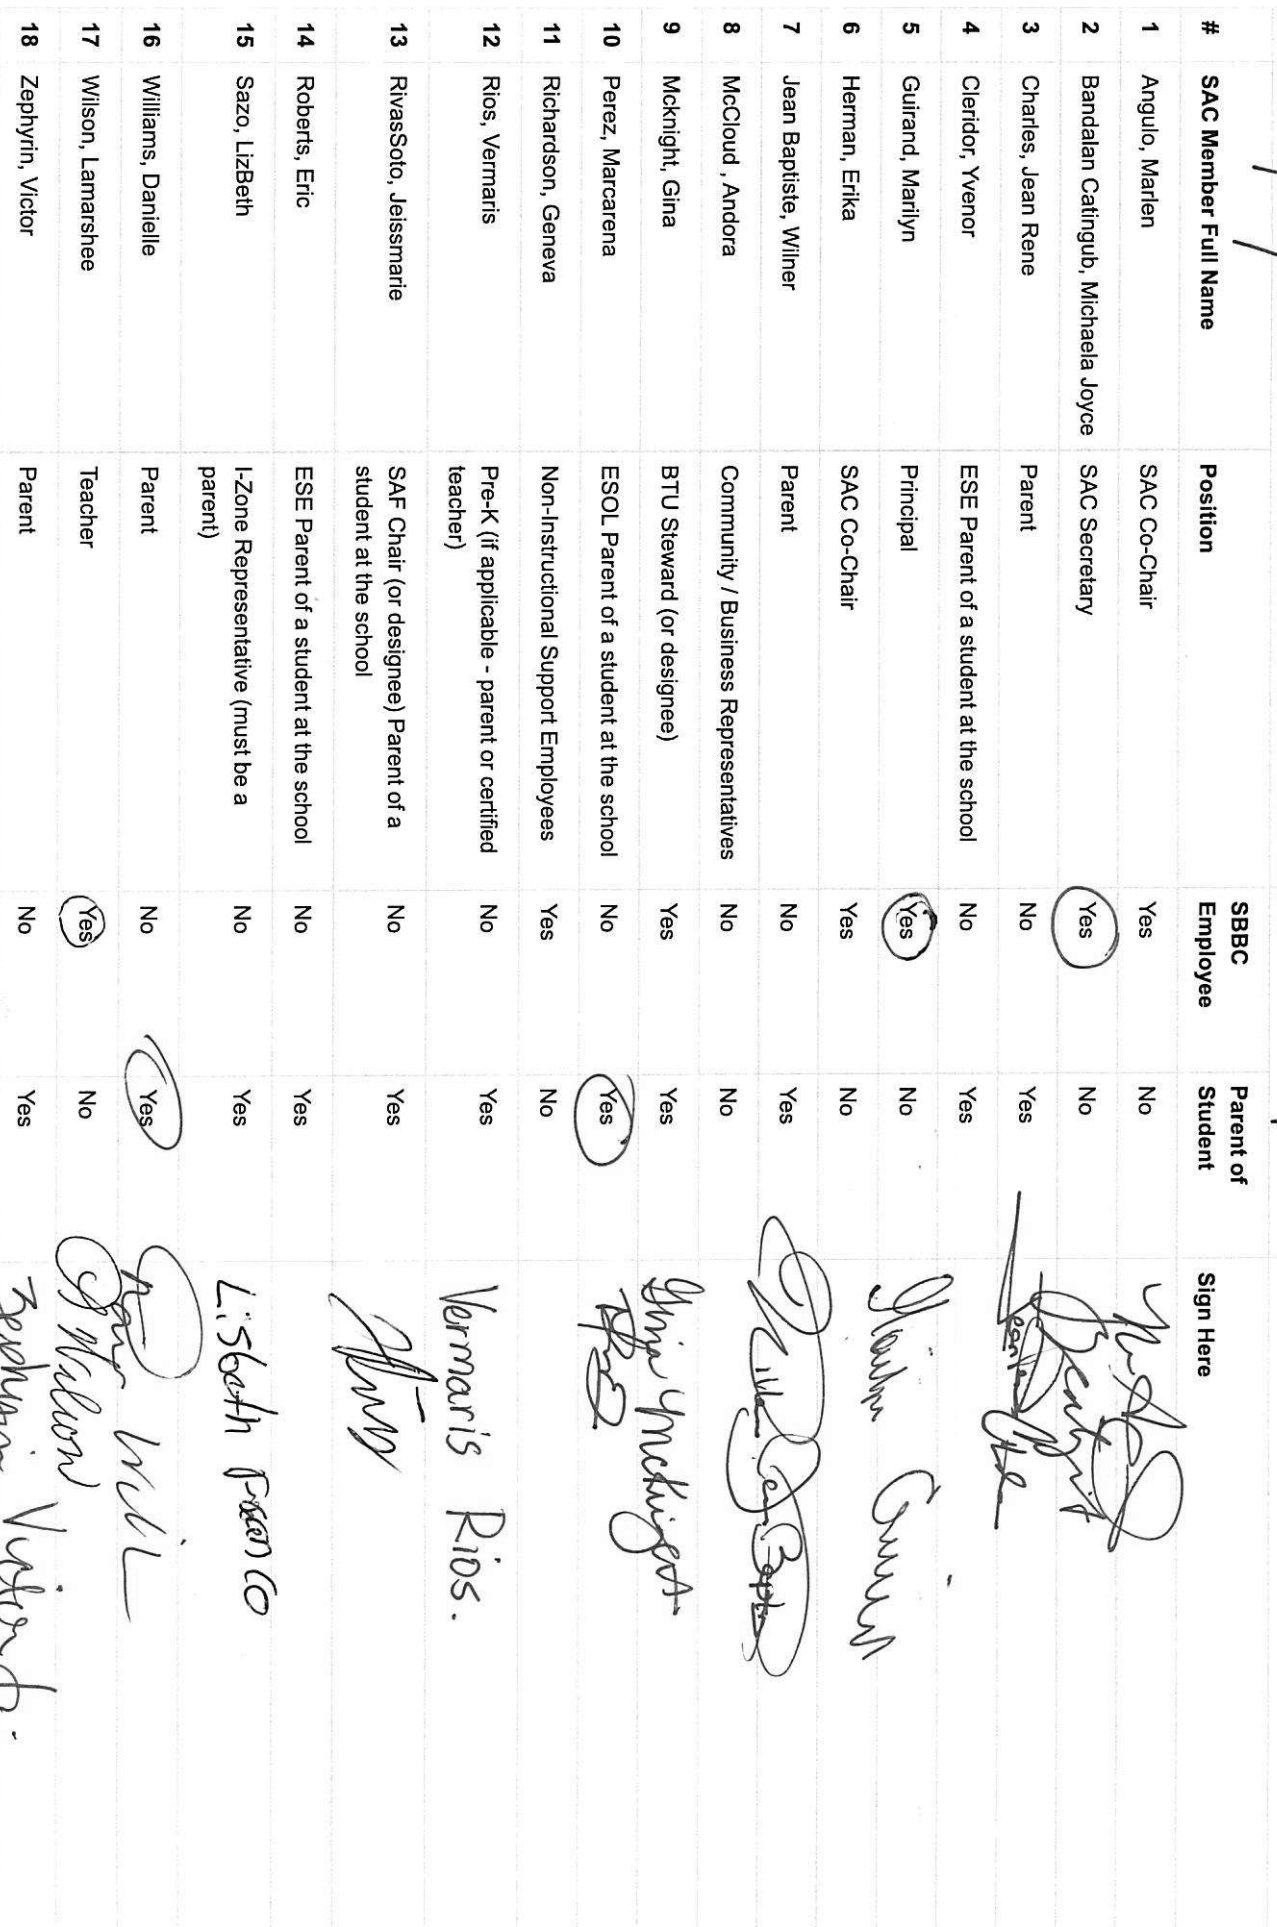 # SAC Member Full Name Position SBBC Employee Parent of Student Sign Here
1 Angulo, Marlen SAC Co-Chair Yes No
2 Bandalan Catingub, Michaela Joyce SAC Secretary Yes No
3 Charles, Jean Rene Parent No Yes
4 Cleridor, Yvenor ESE Parent of a student at the school No Yes
5 Guirand, Marilyn Principal Yes No
6 Herman, Erika SAC Co-Chair Yes No
7 Jean Baptiste, Wilner Parent No Yes
8 McCloud , Andora Community / Business Representatives No No
9 Mcknight, Gina BTU Steward (or designee) Yes Yes Gina Mcknight
10 Perez, Marcarena ESOL Parent of a student at the school No Yes
11 Richardson, Geneva Non-Instructional Support Employees Yes No
12 Rios, Vermaris Pre-K (if applicable - parent or certified teacher) No Yes Vermaris Rios.
13 RivasSoto, Jeissmarie SAF Chair (or designee) Parent of a student at the school No Yes
14 Roberts, Eric ESE Parent of a student at the school No Yes
15 Sazo, LizBeth I-Zone Representative (must be a parent) No Yes
16 Williams, Danielle Parent No Yes
17 Wilson, Lamarshee Teacher Yes No
18 Zephyrin, Victor Parent No Yes